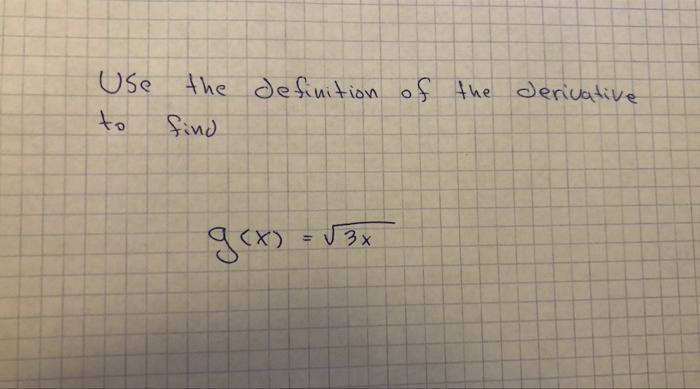 Use the definition of the derivative
to find
g(x) = √3x